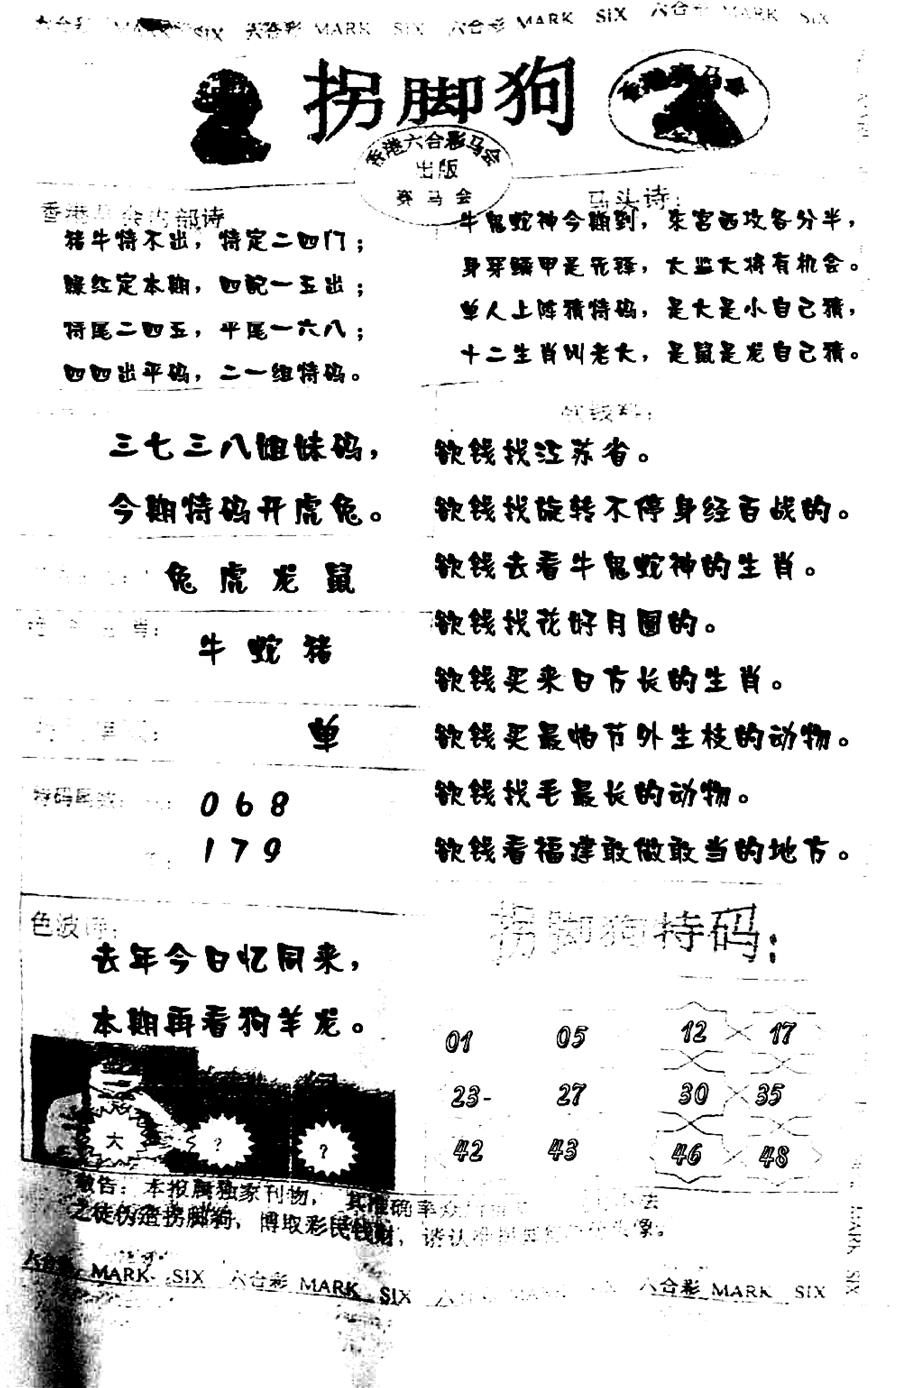 六合彩 MARK SIX 六合彩 MARK SIX 六合彩 MARK SIX
拐脚狗
香港六合彩马会
出版
赛马会
香港马会内部诗
猪牛特不出，特定二四门；
绿红定本期，四配一五出；
特尾二四五，平尾一六八；
四四出平码，二一组特码。
马头诗：
牛鬼蛇神今期到，东宫西攻各分半，
身穿鳞甲是先锋，太监大将有机会。
单人上阵猜特码，是大是小自己猜，
十二生肖叫老大，是鼠是龙自己猜。
三七三八姐妹码，
今期特码开虎兔。
兔虎龙鼠
牛蛇猪
单
特码尾数：
0 6 8
1 7 9
欲钱料：
欲钱找江苏省。
欲钱找旋转不停身经百战的。
欲钱去看牛鬼蛇神的生肖。
欲钱找花好月圆的。
欲钱买来日方长的生肖。
欲钱买最怕节外生枝的动物。
欲钱找毛最长的动物。
欲钱看福建敢做敢当的地方。
色波诗：
去年今日忆同来，
本期再看狗羊龙。
大 ? ?
拐脚狗特码：
01 05 12 17
23- 27 30 35
42 43 46 48
敬告：本报属独家刊物，其准确率
之徒伪造拐脚狗，博取彩民钱财，请认准
六合彩 MARK SIX 六合彩 MARK SIX 六合彩 MARK SIX
MARK SIX